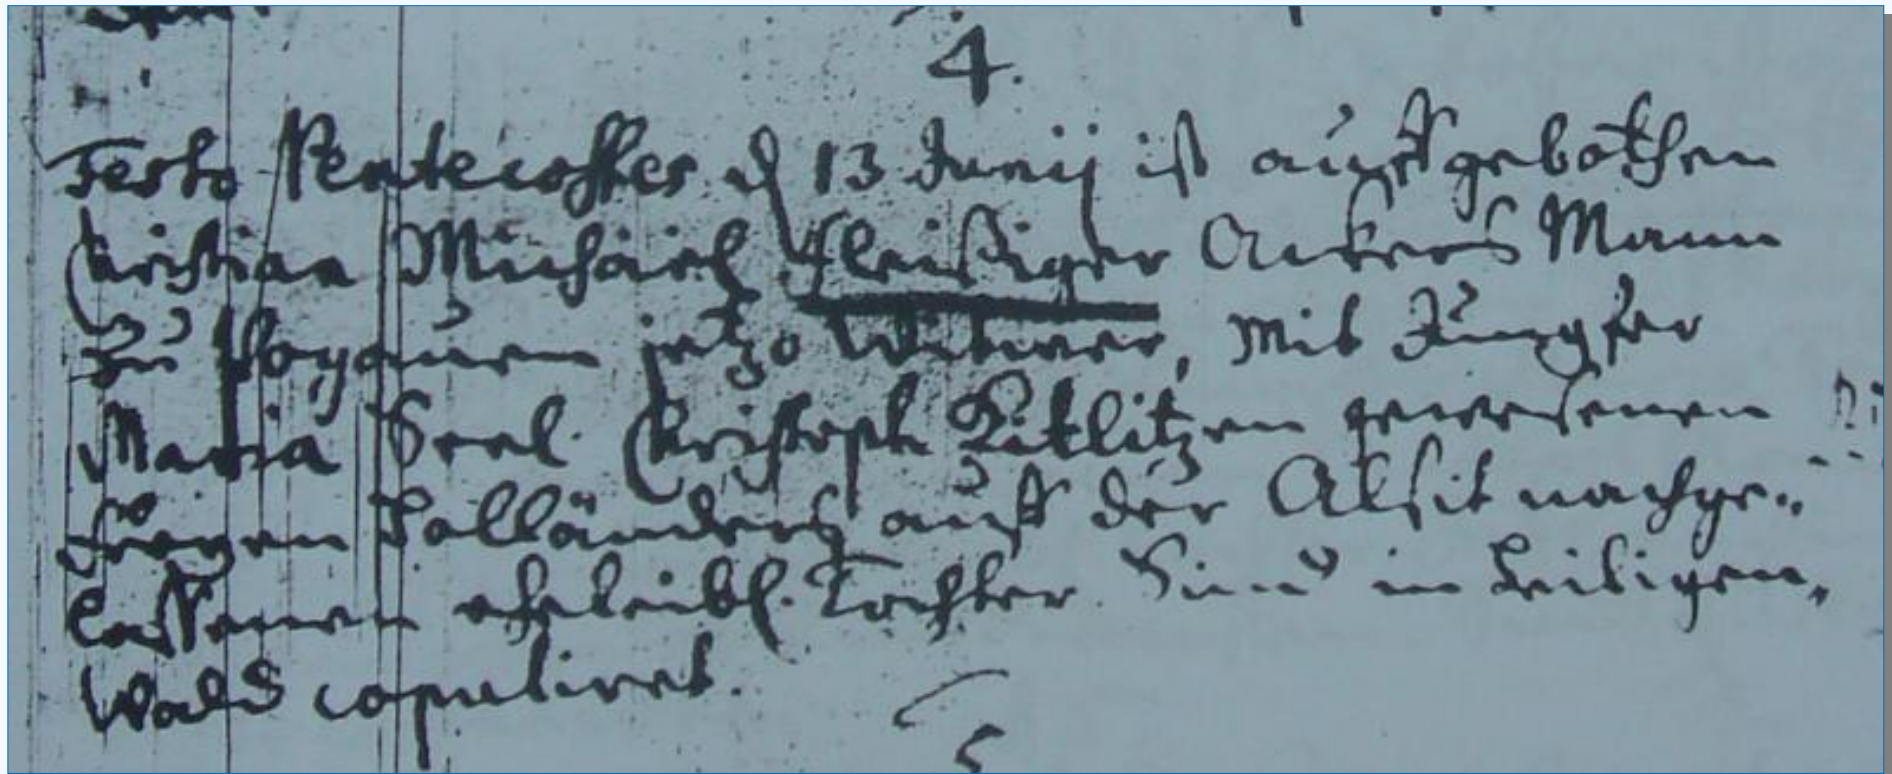 4.
Festo Pentecostes d 13 Junij ist auff gebothen
Christian Michäel Fleißiger Ackers Mann
zu Poyauen jetzo Witwer, mit Jungfer
Maria Seel. Christoph Kittlitzen gewesenen
Freyen Holländers auß der Alsit nachge-
laßenen eheleibl. Tochter. Sind in Heiligen-
Wald copuliret.
5